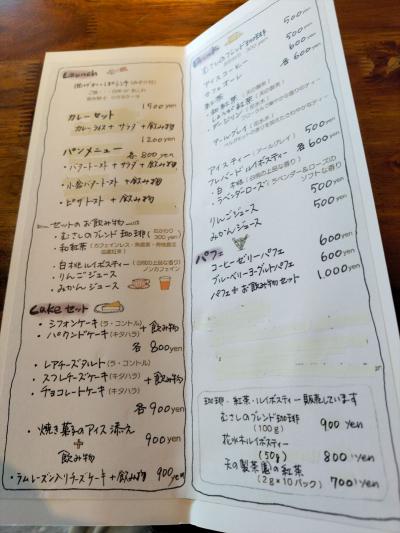 Lunch
1500 yen
カレーセット
カレーライス + サラダ + 飲み物
1200 yen
パンメニュー
各 800 yen
・バタートースト + サラダ + 飲み物
・小倉バタートースト + 飲み物
・ピザトースト + 飲み物
セットのお飲み物
・むさしのブレンド珈琲 (おかわり 300 yen)
・和紅茶
・白桃ルイボスティー (白桃の上品な香り)
ノンカフェイン
・りんごジュース
・みかんジュース
Cake セット
・シフォンケーキ(ラ・コントル)
・パウンドケーキ(キタハラ)
+ 飲み物
各 800 yen
・レアチーズタルト(ラ・コントル)
・スフレチーズケーキ(キタハラ)
・チョコレートケーキ(キタハラ)
+ 飲み物
各 900 yen
・焼き菓子のアイス添え
+
飲み物
900 yen
・ラムレーズン入りチーズケーキ + 飲み物 900 yen
Drink
むさしのブレンド珈琲 500 yen
アイスコーヒー 500 yen
カフェオーレ 600 yen
紅茶 各 600 yen
・和紅茶
・ダージリン
・アールグレイ
アイスティー(アールグレイ) 500 yen
フレーバードルイボスティー 各 600 yen
・白桃(白桃の上品な香り)
・ラベンダーローズ(ラベンダー&ローズの
ソフトな香り)
りんごジュース 500 yen
みかんジュース 500 yen
パフェ
コーヒーゼリーパフェ 600 yen
ブルーベリーヨーグルトパフェ 600 yen
パフェ+お飲み物セット 1,000 yen
珈琲・紅茶・ルイボスティー 販売しています
むさしのブレンド珈琲 900 yen
(100g)
花水木ルイボスティー
(50g) 800 yen
天の製茶園の紅茶
(2g×10パック) 700 yen